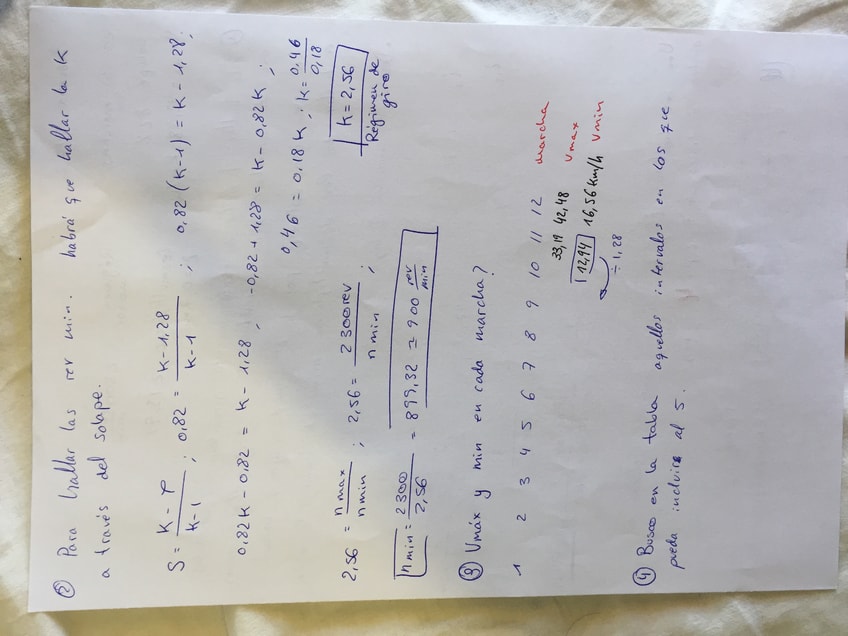 ② Para hallar las rev min. habrá que hallar la K
a través del solape.
S = (K - φ)/(K-1) ; 0,82 = (K-1,28)/(K-1) ; 0,82 (K-1) = K - 1,28 ;
0,82K - 0,82 = K - 1,28 ; -0,82 + 1,28 = K - 0,82K ;
0,46 = 0,18 K ; K = 0,46/0,18
K = 2,56
Régimen de
giro
2,56 = n max/n min ; 2,56 = 2300 rev/n min ;
n min = 2300/2,56 = 899,32 ≃ 900 rev/min
③ Vmáx y min en cada marcha?
1 2 3 4 5 6 7 8 9 10 11 12 marcha
33,19 42,48 Vmax
12,94 16,56 km/h Vmin
÷ 1,28
④ Busco en la tabla aquellos intervalos en los que
pueda incluir al 5.